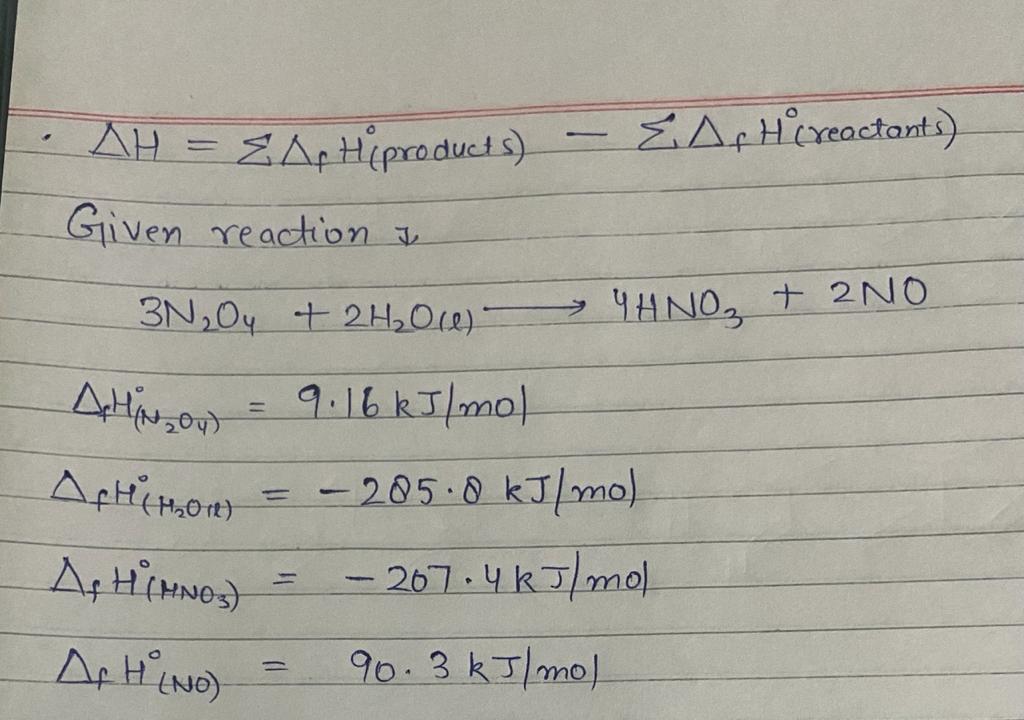 • ΔH = ΣΔfH°(products) − ΣΔfH°(reactants)
Given reaction
3N₂O₄ + 2H₂O(l) ⟶ 4HNO₃ + 2NO
ΔfH°(N₂O₄) = 9.16 kJ/mol
ΔfH°(H₂O(l)) = −285.8 kJ/mol
ΔfH°(HNO₃) = −207.4 kJ/mol
ΔfH°(NO) = 90.3 kJ/mol